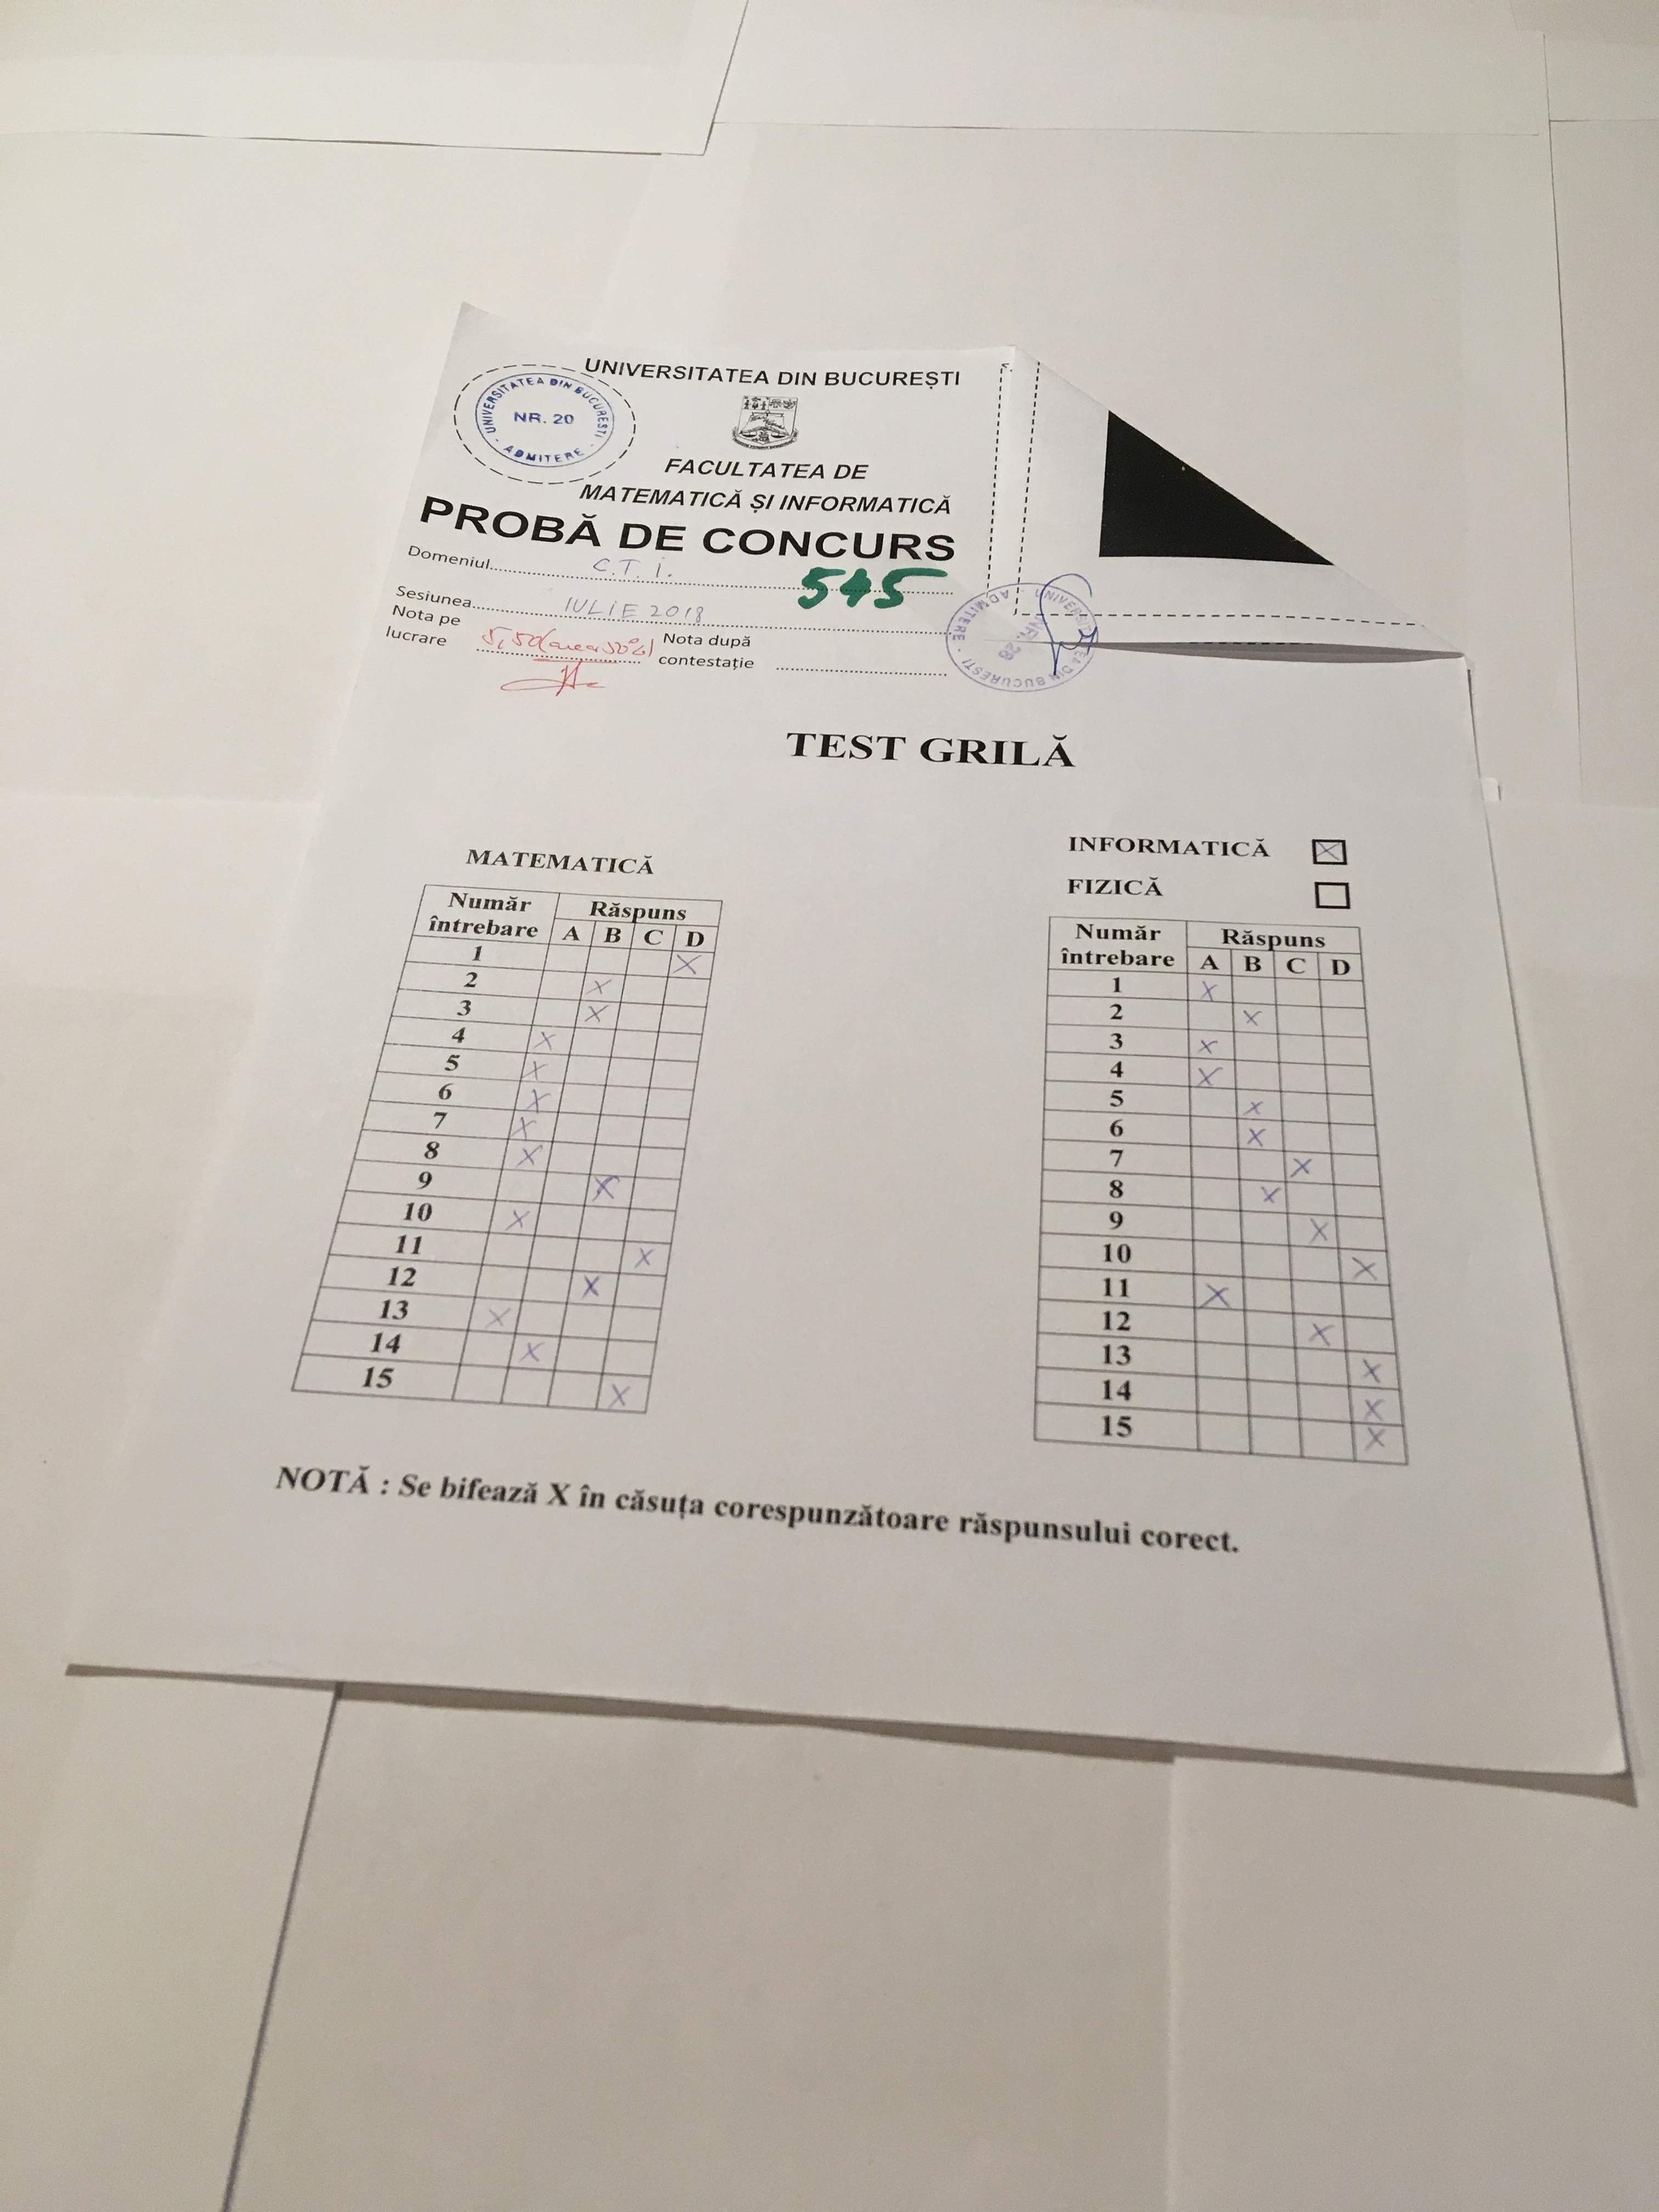 UNIVERSITATEA DIN BUCUREȘTI
UNIVERSITATEA DIN BUCUREȘTI
NR. 20
ADMITERE
FACULTATEA DE
MATEMATICĂ ȘI INFORMATICĂ
PROBĂ DE CONCURS
Domeniul C.T.I.
545
Sesiunea IULIE 2018
Nota pe lucrare 5,50
Nota după contestație
UNIVERSITATEA DIN BUCUREȘTI
NR. 28
ADMITERE
TEST GRILĂ
MATEMATICĂ
Număr întrebare Răspuns
A B C D
1 X
2 X
3 X
4 X
5 X
6 X
7 X
8 X
9 X
10 X
11 X
12 X
13 X
14 X
15 X
INFORMATICĂ X
FIZICĂ
Număr întrebare Răspuns
A B C D
1 X
2 X
3 X
4 X
5 X
6 X
7 X
8 X
9 X
10 X
11 X
12 X
13 X
14 X
15 X
NOTĂ : Se bifează X în căsuța corespunzătoare răspunsului corect.